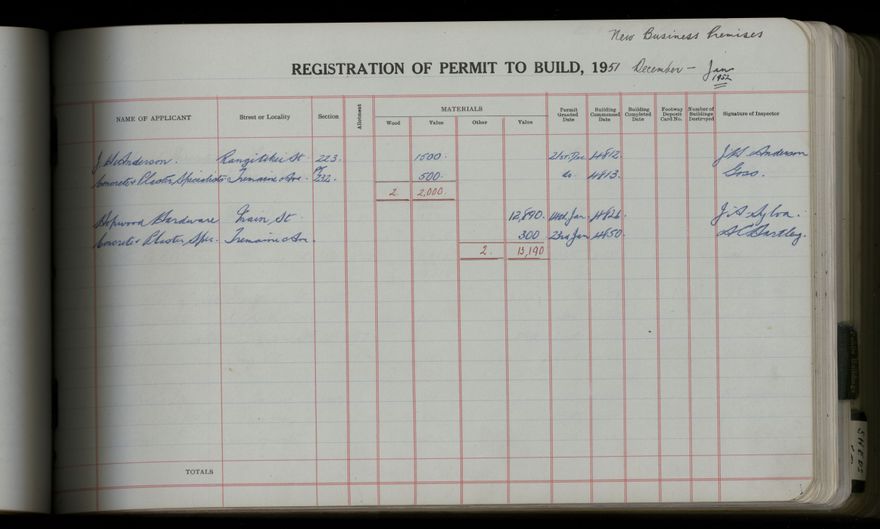 New Business Premises
REGISTRATION OF PERMIT TO BUILD, 1951 December - Jan 1952
NAME OF APPLICANT Street or Locality Section Allotment MATERIALS Permit Granted Date Building Commenced Date Building Completed Date Footway Deposit Card No. Number of Buildings Destroyed Signature of Inspector
Wood Value Other Value
J H Anderson. Rangitikei St 223. 1500. 21st Dec 4812. J H Anderson
Concrete & Plaster Specialists Tremaine Ave Pt 232. 500. do 4813. Goss.
2 2,000.
Hopwood Hardware Main St 12,890. Jan 4826. J A Sylva.
Concrete & Plaster Spec. Tremaine Av. 300 23rd Jan 4850. A C Hartley.
2. 13,190
TOTALS
SHEDS